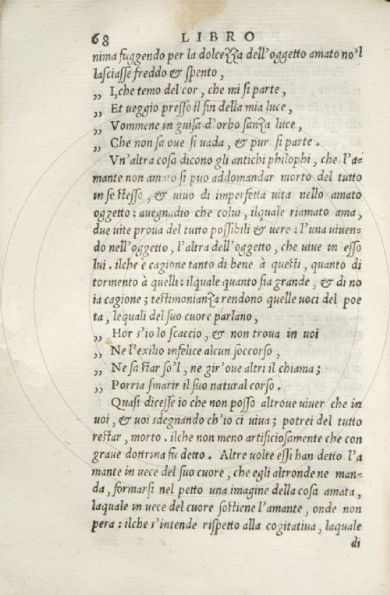 68 LIBRO
nima fuggendo per la dolcezza dell'oggetto amato no'l
lasciasse freddo & spento,
„ I, che temo del cor, che mi si parte,
„ Et ueggio presso il fin della mia luce,
„ Vommene in guisa d'orbo sanza luce,
„ Che non sa oue si uada, & pur si parte.
Vn'altra cosa dicono gli antichi philophi, che l'a-
mante non amato si puo addomandar morto del tutto
in se stesso, & uiuo di imperfetta uita nello amato
oggetto: auegnadio che colui, ilquale riamato ama,
due uite proua del tutto possibili & uere: l'una uiuen-
do nell'oggetto, l'altra dell'oggetto, che uiue in esso
lui. ilche è cagione tanto di bene à questi, quanto di
tormento à quelli: ilquale quanto sia grande, & di no
ia cagione; testimonianza rendono quelle uoci del poe
ta, lequali del suo cuore parlano,
„ Hor s'io lo scaccio, & non troua in uoi
„ Ne l'exilio infelice alcun soccorso,
„ Ne sa star so'l, ne gir'oue altri il chiama;
„ Porria smarir il suo natural corso.
Quasi dicesse io che non posso altroue uiuer che in
uoi, & uoi sdegnando ch'io ci uiua; potrei del tutto
restar, morto. ilche non meno artificiosamente che con
graue dottrina fu detto. Altre uolte essi han detto l'a
mante in uece del suo cuore, che egli altronde ne man-
da, formarsi nel petto una imagine della cosa amata,
laquale in uece del cuore sostiene l'amante, onde non
pera: ilche s'intende rispetto alla cogitatiua, laquale
di